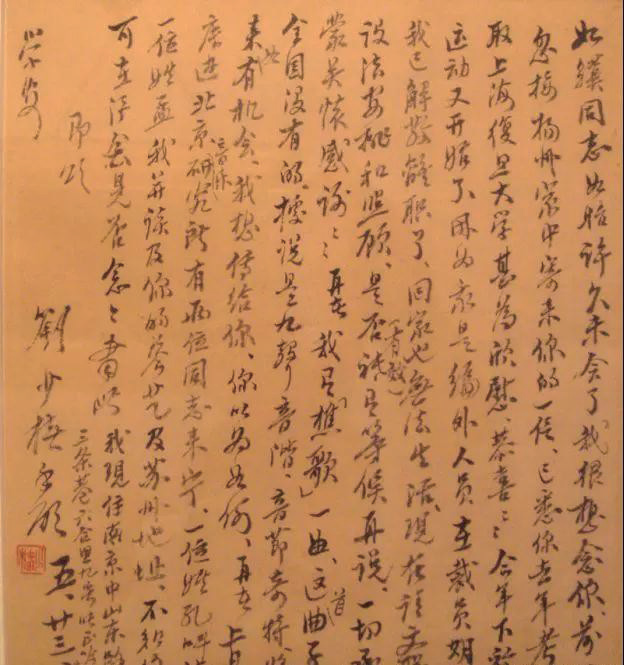 如鏌同志如晤许久未会了我很想念你、前
忽接扬州家中寄来你的一信、已悉你去年考
取上海復旦大学甚为欣慰、恭喜：：今年下放
运动又开始了、因为我是编外人员在裁员期
我已解散离职了、回家也(有效)无法生活、现在请文
设法安排和照顾、是否就是等候再说、一切承
蒙关怀感谢：：再者我弓「樵歌」一曲、这曲子道
全国没有的、据说是九声音阶、音节奇特
来有机会、我想传给你、你以为如何、再者上月
唐进北京音乐研究所有两位同志来宁、一位姓孔
一位姓孟我并谈及你的琴艺及苏州地址、不知
可在浮会见否念：书此
即颂
学安
劉少椿手啟 五、廿三
我现住南京中山东路
三条巷六合里九